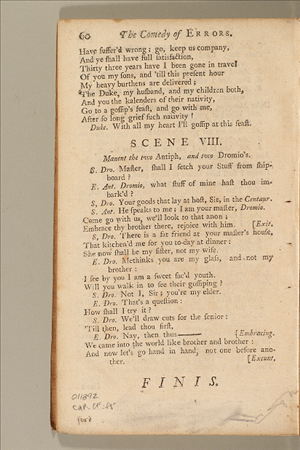 60 The Comedy of ERRORS.
Have suffer'd wrong; go, keep us company,
And ye shall have full satisfaction,
Thirty three years have I been gone in travel
Of you my sons, and 'till this present hour
My heavy burthens are delivered;
The Duke, my husband, and my children both,
And you the kalenders of their nativity,
Go to a gossip's feast, and go with me,
After so long grief such nativity!
Duke. With all my heart I'll gossip at this feast.
SCENE VIII.
Manent the two Antiph, and two Dromio's.
S. Dro. Master, shall I fetch your Stuff from ship-
board?
E. Ant. Dromio, what stuff of mine hast thou im-
bark'd?
S. Dro. Your goods that lay at host, Sir, in the Centaur.
S. Ant. He speaks to me; I am your master, Dromio.
Come go with us, we'll look to that anon;
Embrace thy brother there, rejoice with him. [Exit.
S. Dro. There is a fat friend at your master's house,
That kitchen'd me for you to-day at dinner:
She now shall be my sister, not my wife.
E. Dro. Methinks you are my glass, and not my
brother:
I see by you I am a sweet fac'd youth.
Will you walk in to see their gossiping?
S. Dro. Not I, Sir; you're my elder.
E. Dro. That's a question:
How shall I try it?
S. Dro. We'll draw cuts for the senior:
'Till then, lead thou first.
E. Dro. Nay, then thus—— [Embracing.
We came into the world like brother and brother:
And now let's go hand in hand, not one before ano-
ther. [Exeunt.
FINIS.